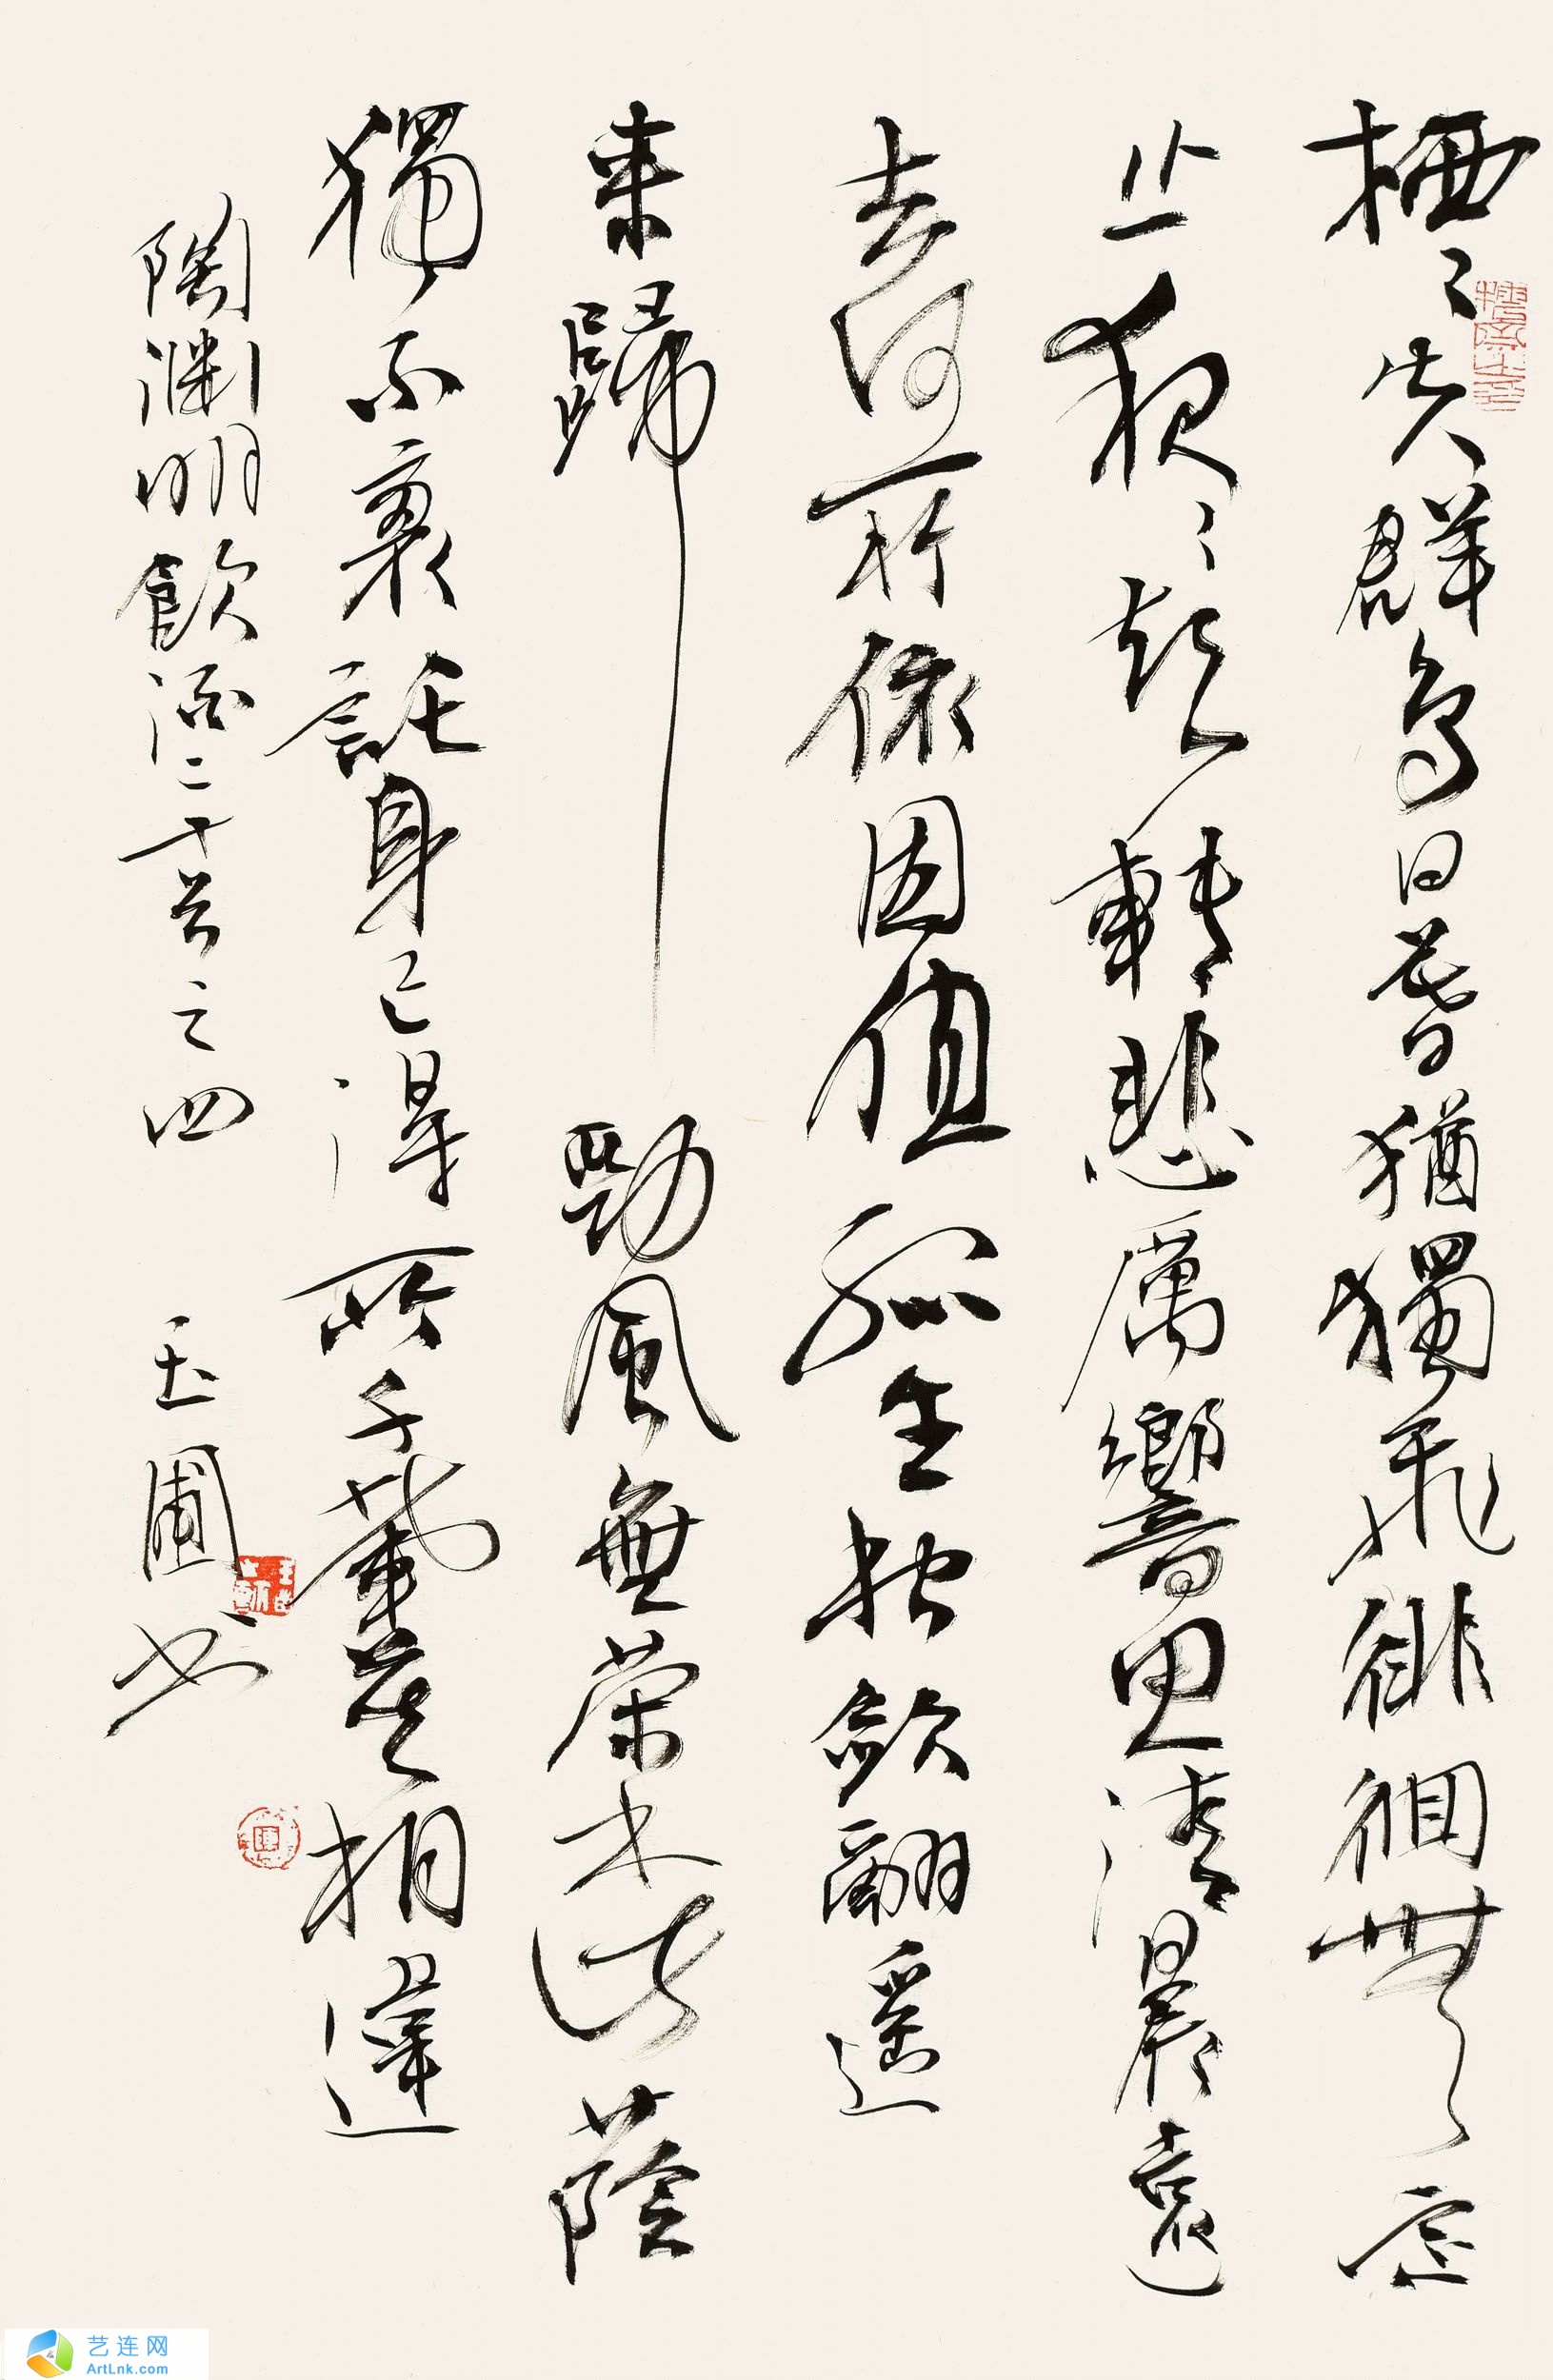 栖〻失群鳥日暮猶獨飛徘徊無定
止夜〻聲轉悲厲響思清晨遠
去何所依因值孤生松斂翮遥
来歸勁風無荣木此蔭
獨不衰託身已得所千載莫相違
陶淵明飲酒二十首之四
玉圃书
艺连网
ArtLnk.com